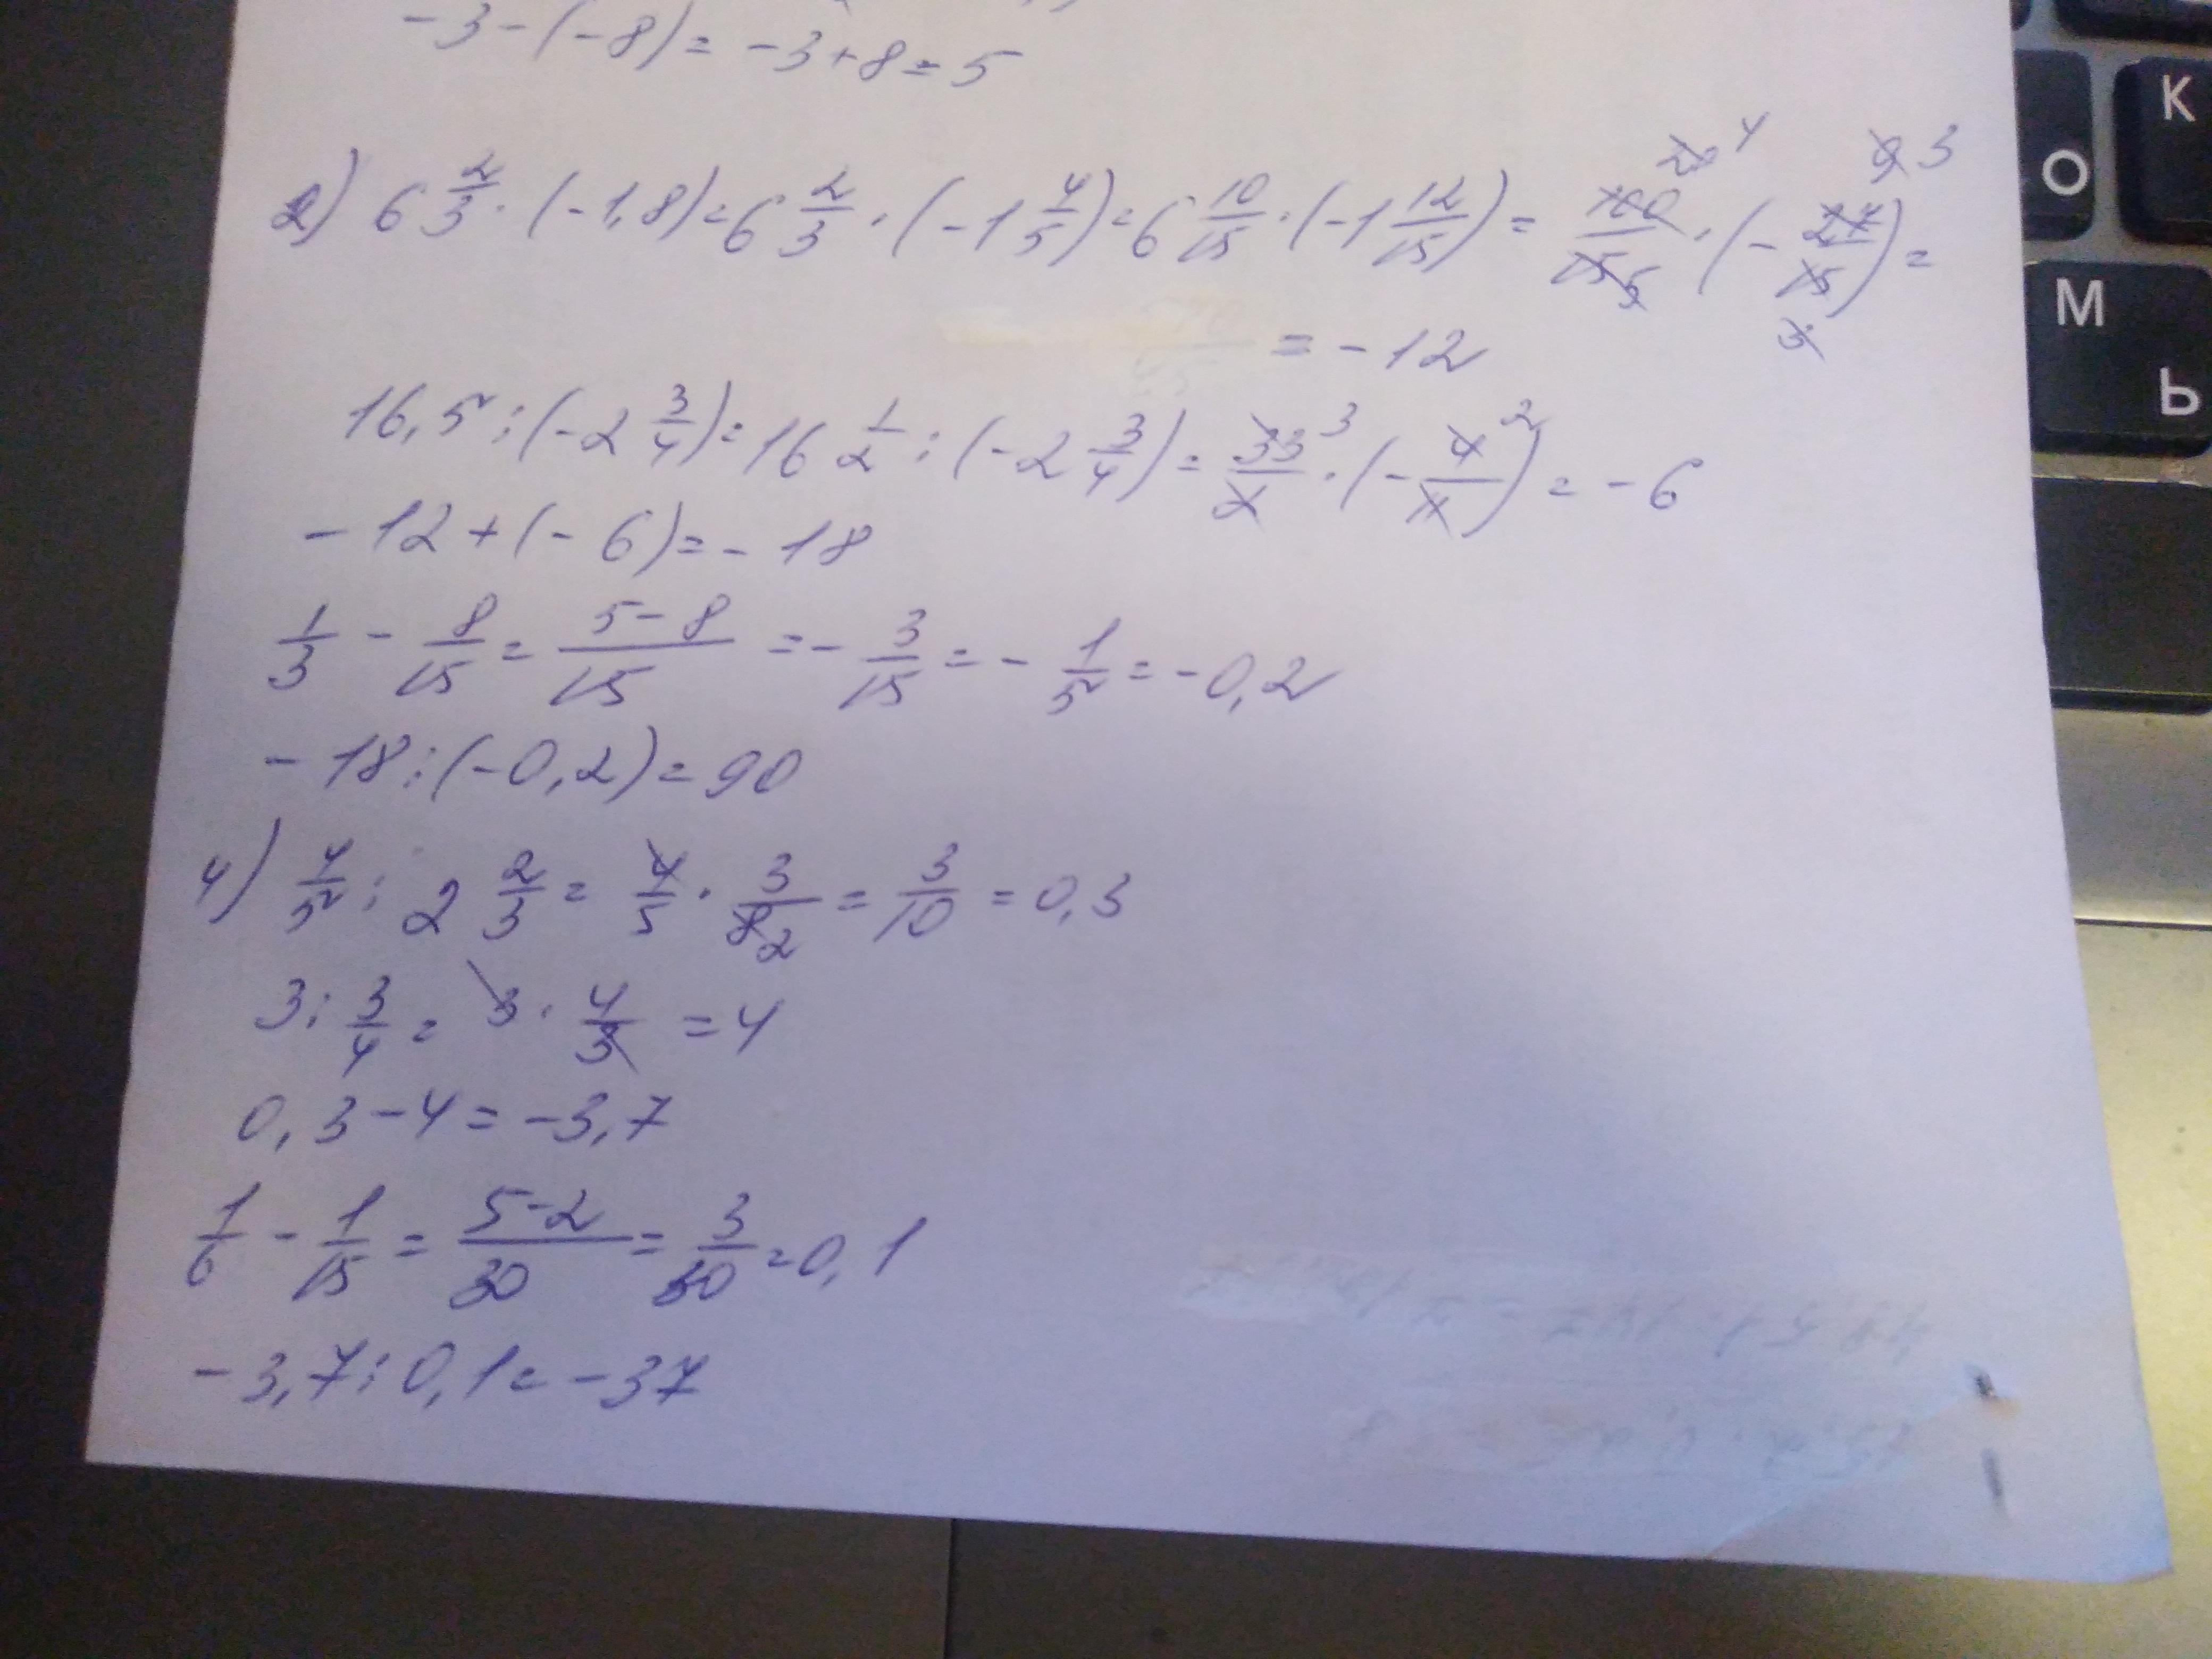 -3-(-8)= -3+8=5
2) 6 2/3 · (-1,8)=6 2/3 · (-1 4/5)=6 10/15 · (-1 12/15)= 100/15 · (-27/15)=
20 4 9 3
5 3
= -12
16,5:(-2 3/4)=16 1/2:(-2 3/4)= 33/2 · (-4/11)= -6
3 2
-12+(-6)=-18
1/3 - 8/15 = (5-8)/15 =- 3/15 = - 1/5 = -0,2
-18:(-0,2)=90
4) 4/5 : 2 2/3 = 4/5 · 3/8 = 3/10 = 0,3
2
3: 3/4 = 3 · 4/3 =4
0,3-4=-3,7
1/6 - 1/15 = (5-2)/30 = 3/30 =0,1
-3,7:0,1=-37
К
О
М
Ь